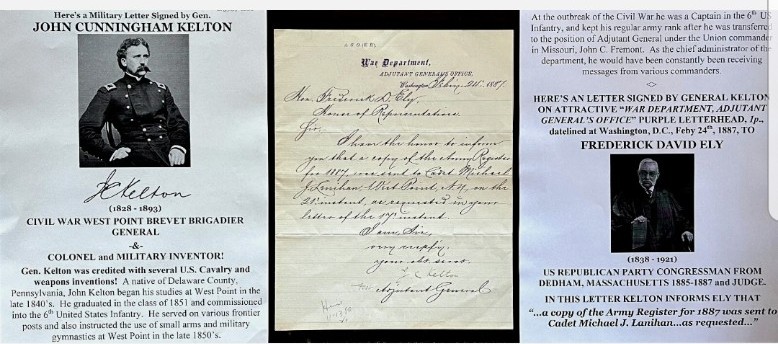 Here's a Military Letter Signed by Gen.
JOHN CUNNINGHAM KELTON
JCKelton
(1828 - 1893)
CIVIL WAR WEST POINT BREVET BRIGADIER
GENERAL
-&-
COLONEL and MILITARY INVENTOR!
Gen. Kelton was credited with several U.S. Cavalry and
weapons inventions! A native of Delaware County,
Pennsylvania, John Kelton began his studies at West Point in the
late 1840's. He graduated in the class of 1851 and commissioned
into the 6th United States Infantry. He served on various frontier
posts and also instructed the use of small arms and military
gymnastics at West Point in the late 1850's.
War Department,
ADJUTANT GENERAL'S OFFICE,
Washington, Feby. 24", 1887.
Hon. Frederick D. Ely,
House of Representatives
Sir,
I have the honor to inform
you that a copy of the Army Register
for 1887, was sent to Cadet Michael
J. Lenihan, West Point, N.Y., on the
21st instant, as requested in your
letter of the 17" instant.
I am, Sir,
very respy,
your obt. servt.
J C Kelton
Adjutant General
At the outbreak of the Civil War he was a Captain in the 6th US
Infantry, and kept his regular army rank after he was transferred
to the position of Adjutant General under the Union commander
in Missouri, John C. Fremont. As the chief administrator of the
department, he would have been constantly been receiving
messages from various commanders.
HERE'S AN LETTER SIGNED BY GENERAL KELTON
ON ATTRACTIVE "WAR DEPARTMENT, ADJUTANT
GENERAL'S OFFICE" PURPLE LETTERHEAD, 1p.,
datelined at Washington, D.C., Feby 24th, 1887, TO
FREDERICK DAVID ELY
(1838 - 1921)
US REPUBLICAN PARTY CONGRESSMAN FROM
DEDHAM, MASSACHUSETTS 1885-1887 and JUDGE.
IN THIS LETTER KELTON INFORMS ELY THAT
"...a copy of the Army Register for 1887 was sent to
Cadet Michael J. Lanihan...as requested..."